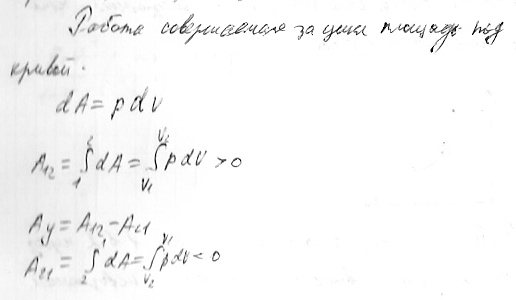 Работа совершаемая за цикл площадь под
кривой.
dA = p dV
A₁₂ = ∫₁² dA = ∫_{V₁}^{V₂} p dV > 0
Aц = A₁₂ - A₂₁
A₂₁ = ∫₂¹ dA = ∫_{V₂}^{V₁} p dV < 0